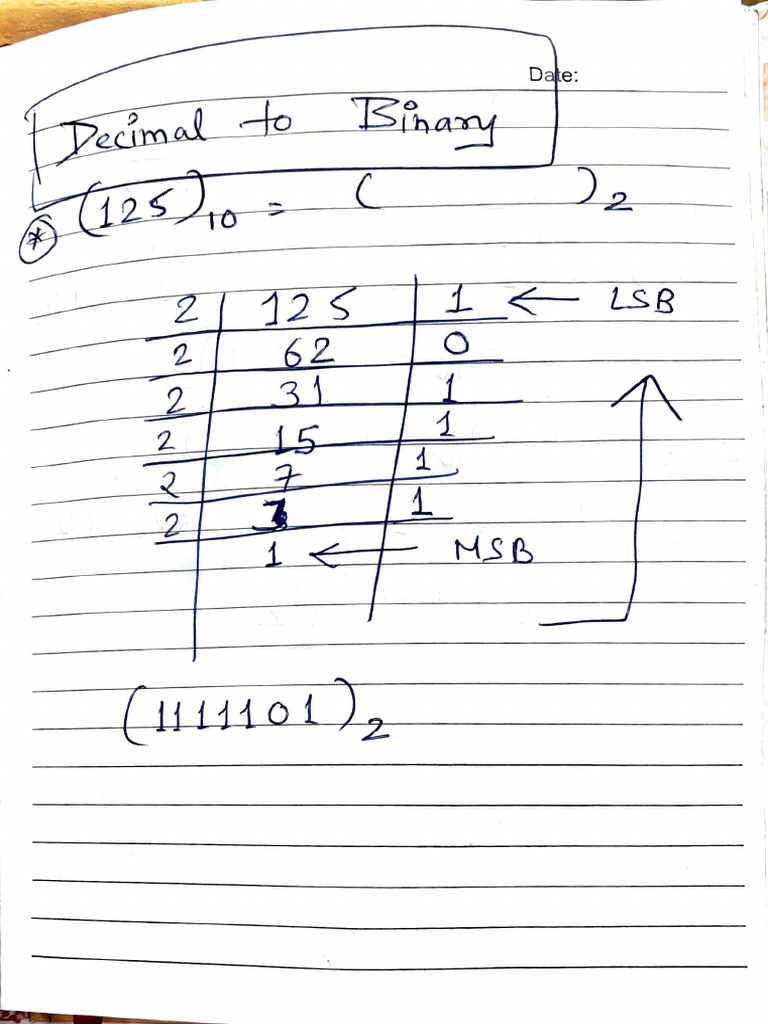 Date:
Decimal to Binary
* (125)10 = ( )2
2 125 1 ← LSB
2 62 0
2 31 1
2 15 1
2 7 1
2 3 1
1 ← MSB
(1111101)2